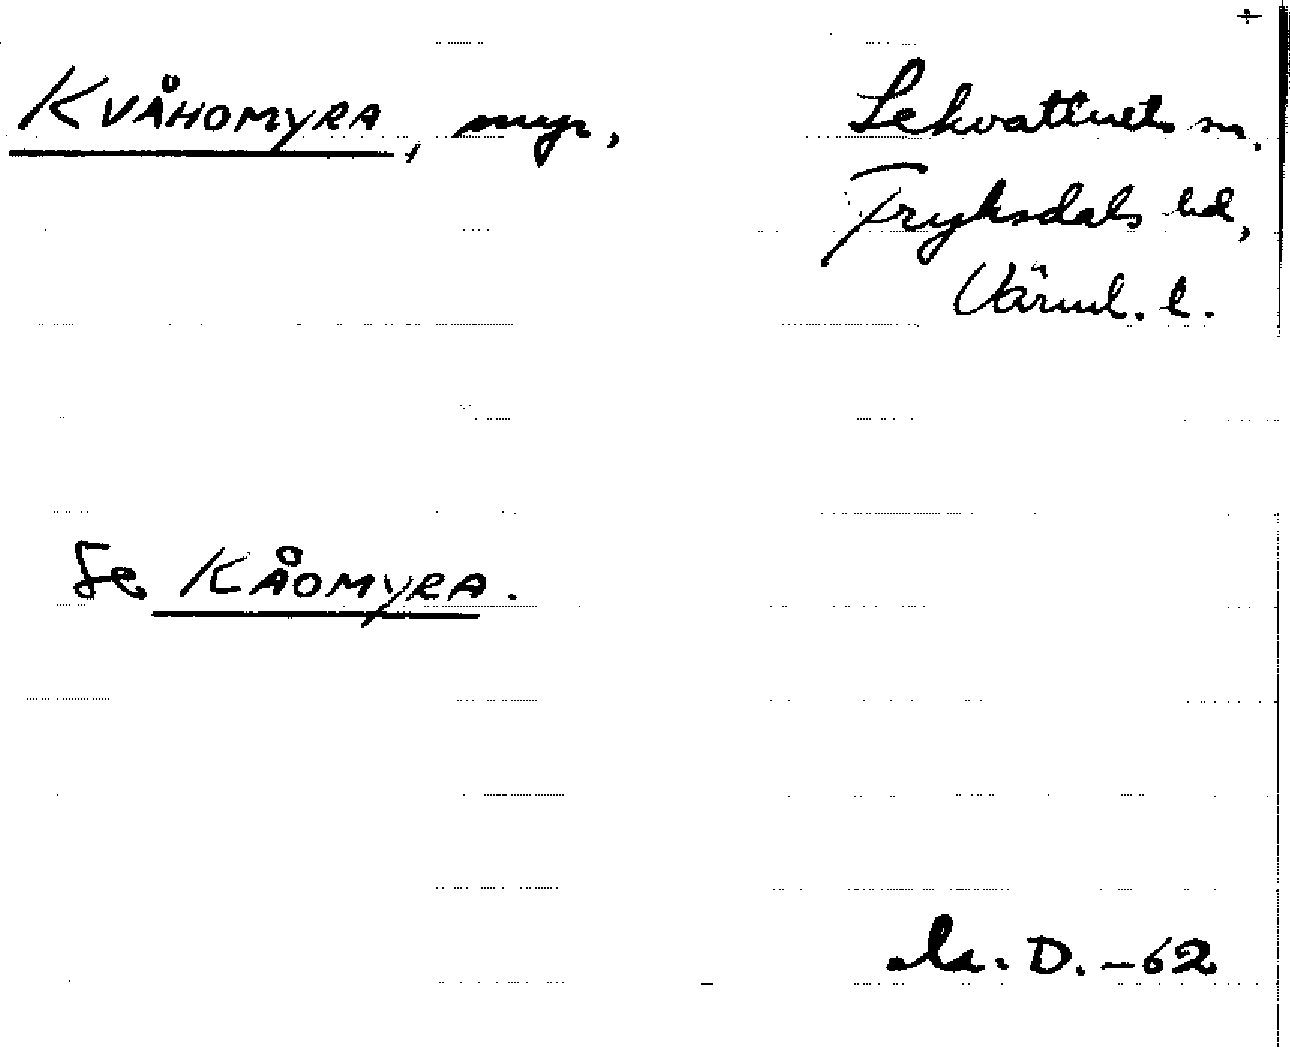 KVÅHOMYRA, myr,
Lekvattnets sn.
Fryksdals hd,
Värml. l.
Se KÅOMYRA.
D. -62